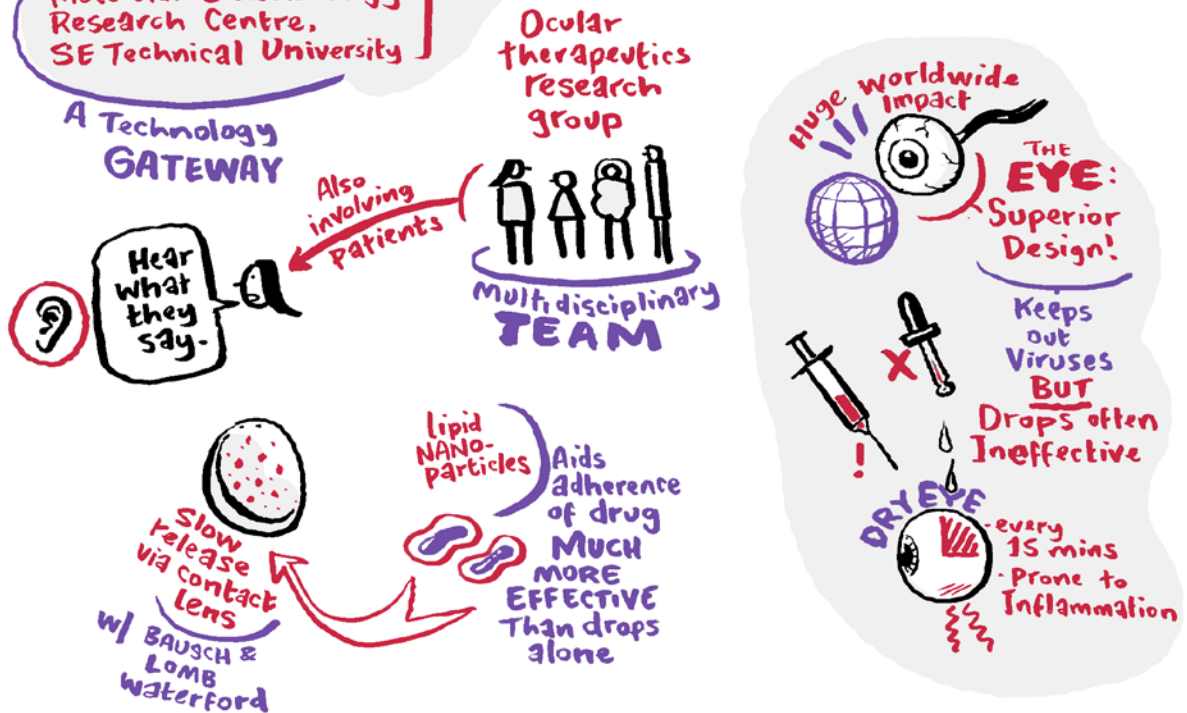 Research Centre,
SE Technical University
A Technology
GATEWAY
Ocular
therapeutics
research
group
Also
involving
patients
Multidisciplinary
TEAM
Hear
what
they
say.
lipid
NANO-
particles
Aids
adherence
of drug
MUCH
MORE
EFFECTIVE
Than drops
alone
Slow
release
via contact
Lens
w/ BAUSCH &
LOMB
Waterford
Huge worldwide
Impact
THE
EYE:
Superior
Design!
Keeps
out
Viruses
BUT
Drops often
Ineffective
X
!
DRY EYE
-every
15 mins
-Prone to
Inflammation